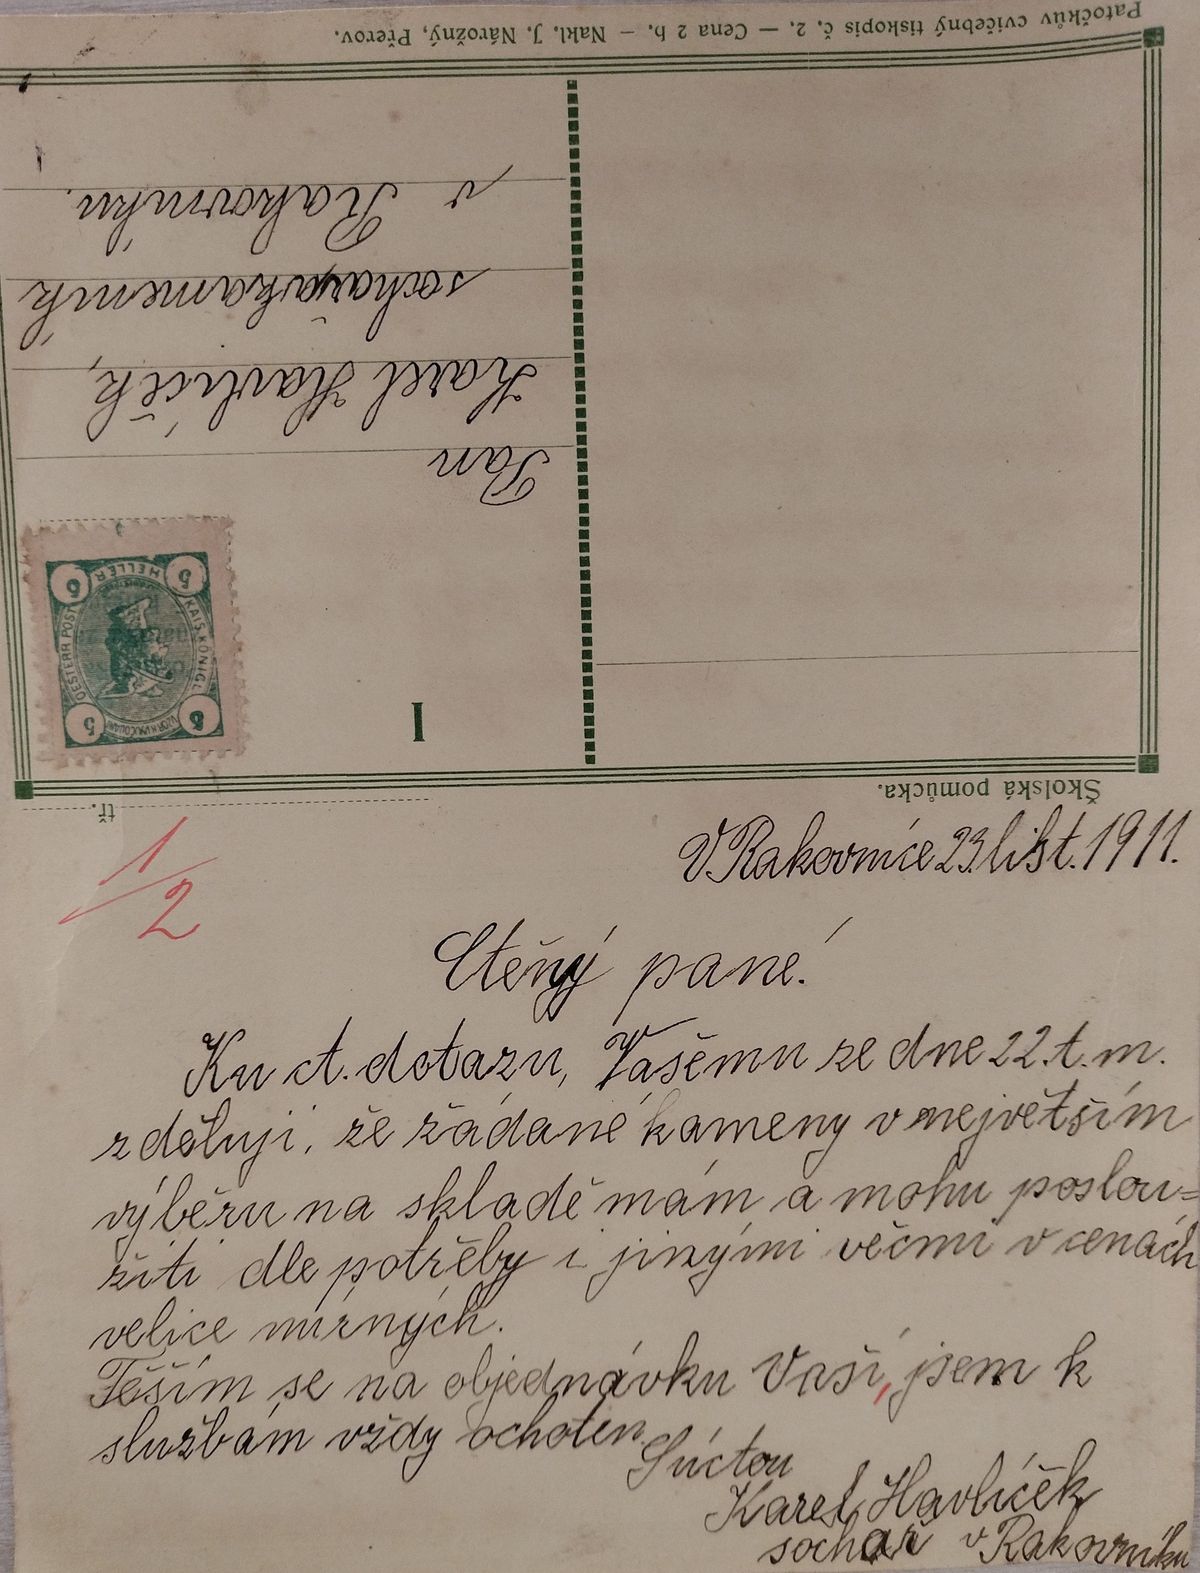 Patočkův cvičebný tiskopis č. 2. — Cena 2 h. — Nakl. J. Nárožný, Přerov.
v Rakovníku.
sochař a kameník
Karel Havlíček,
Pan
5 HELLER 6
KAIS. KÖNIGL. OESTERR. POST
5 6
1
Školská pomůcka.
tř.
1/2
V Rakovníce 23. list. 1911.
Ctěný pane!
Ku ct. dotazu, Vašemu ze dne 22. t. m.
zděluji, že žádané kameny v největším
výběru na skladě mám a mohu poslou=
žiti dle potřeby i jinými věcmi v cenách
velice mírných.
Těším se na objednávku Vaší, jsem k
službám vždy ochoten.
S úctou
Karel Havlíček
sochař v Rakovníku